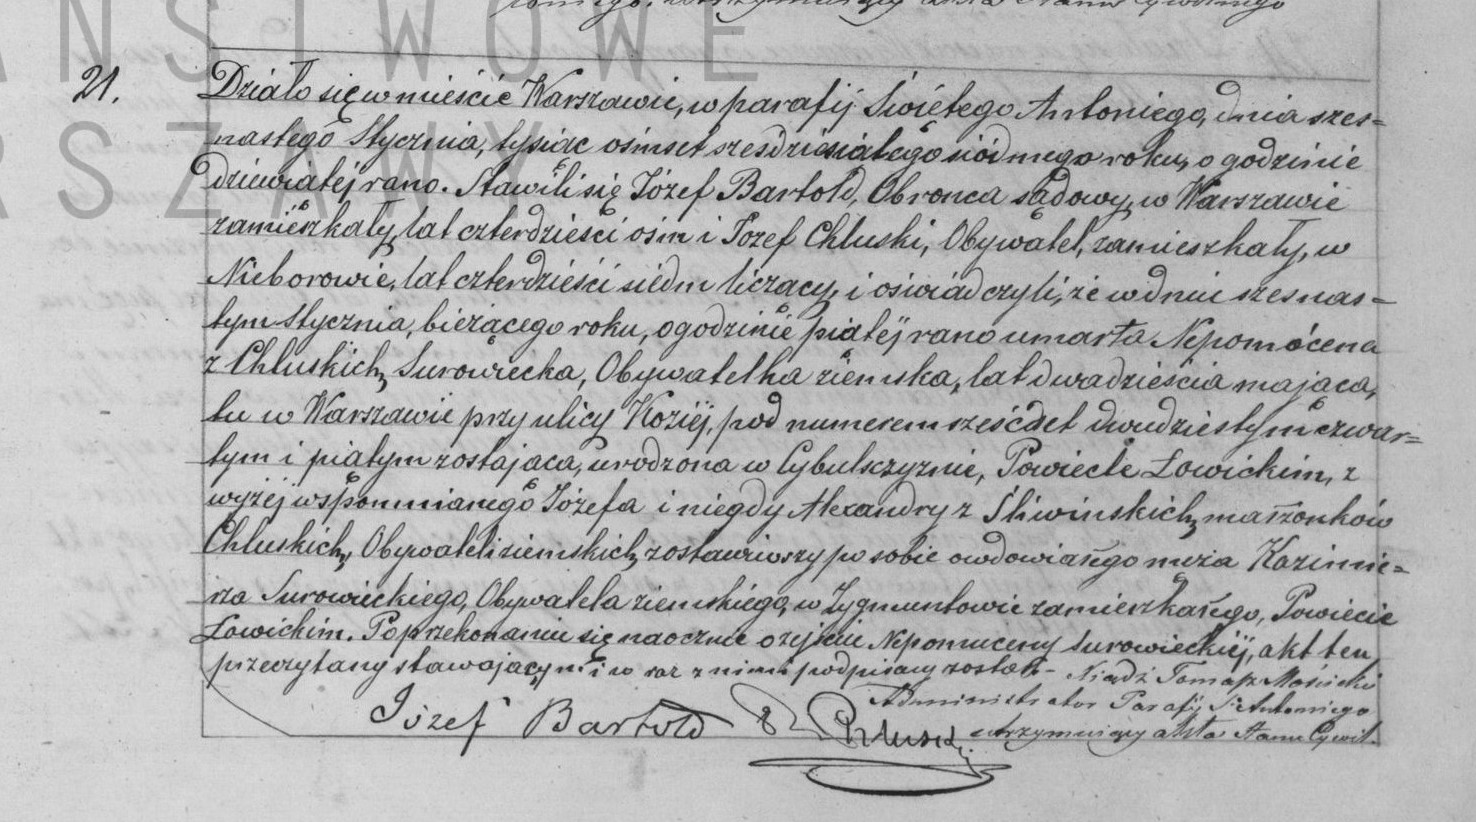 PAŃSTWOWE
WARSZAWY
21.
Działo się w mieście Warszawie, w parafij Świętego Antoniego, dnia szes=
nastego Stycznia, tysiąc ośmset sześdziesiątego siódmego roku, o godzinie
dziewiątéj rano. Stawili się Józef Bartold, Obronca sądowy, w Warszawie
zamieszkały, lat czterdzieści ośm i Józef Chluski, Obywatel, zamieszkały, w
Nieborowie, lat czterdzieści siedm liczący, i oświadczyli, że w dniu szesnas=
tym Stycznia, bieżącego roku, o godzinie piątéj rano umarła Nepomócena
z Chluskich, Surowiecka, Obywatelka ziemska, lat dwadzieścia mająca,
tu w Warszawie przy ulicy Koziéj, pod numerem sześćset dwudziestym czwar=
tym i piątym zostająca, urodzona w Cybulszyznie, Powiecie Łowickim, z
wyżéj wspomnianego Józefa i niegdy Alexandry z Śliwinskich, małżonków
Chluskich, Obywateli ziemskich, zostawiwszy po sobie owdowiałego męża Kazimie=
rza Surowieckiego, Obywatela ziemskiego, w Zygmuntowie zamieszkałego, Powiecie
Łowickim. Po przekonaniu się naocznie o zejściu Nepomuceny Surowieckiéj, akt ten,
przeczytany stawającym i w raz z nimi podpisany został-
Xiądz Tomasz
Administrator Parafij S. Antoniego
utrzymujący akta Stanu Cywil.
Józef Bartold
Chluski